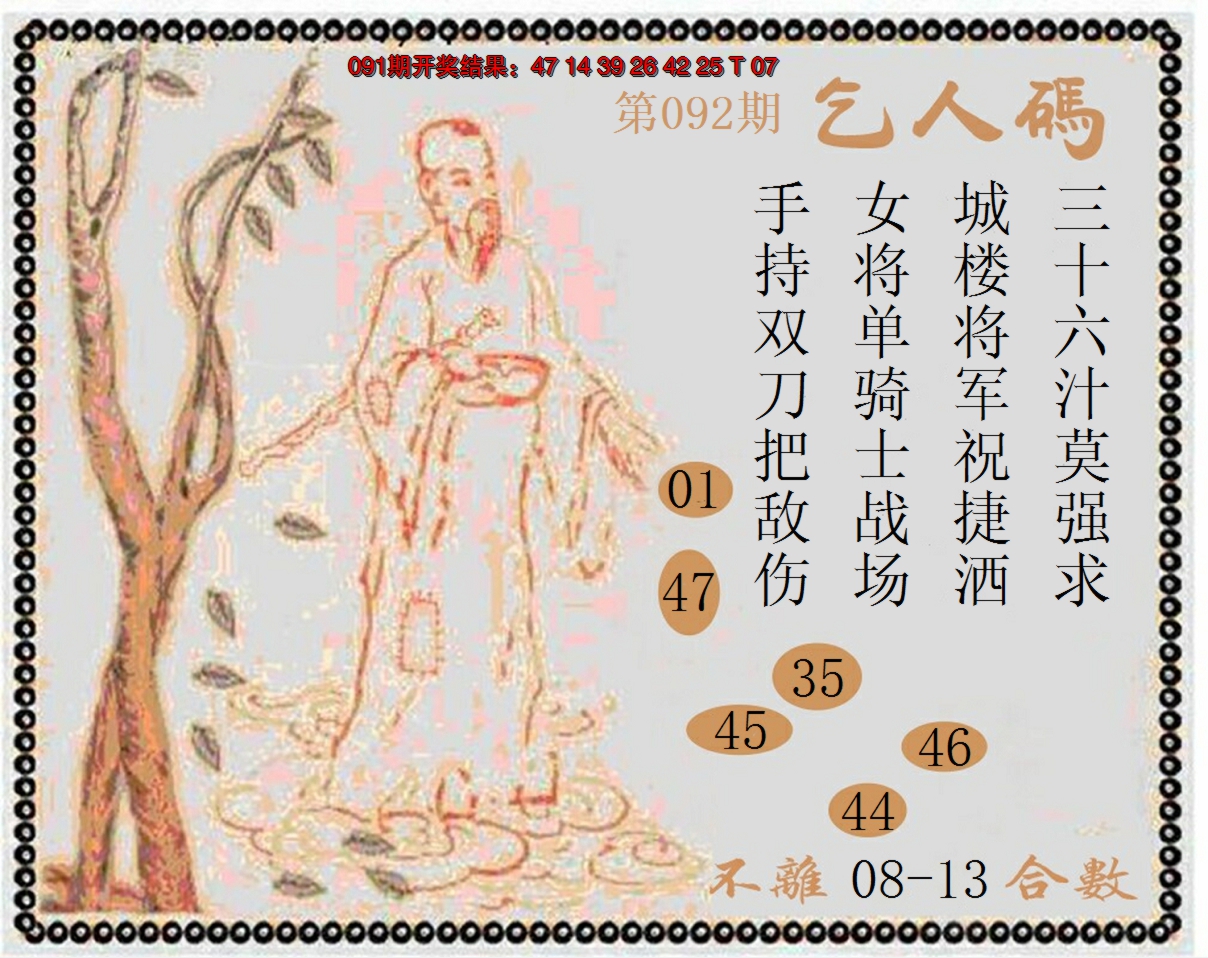 091期开奖结果：47 14 39 26 42 25 T 07
第092期 乞人碼
三十六汁莫强求
城楼将军祝捷洒
女将单骑士战场
手持双刀把敌伤
01
47
35
45
46
44
不離 08-13 合數